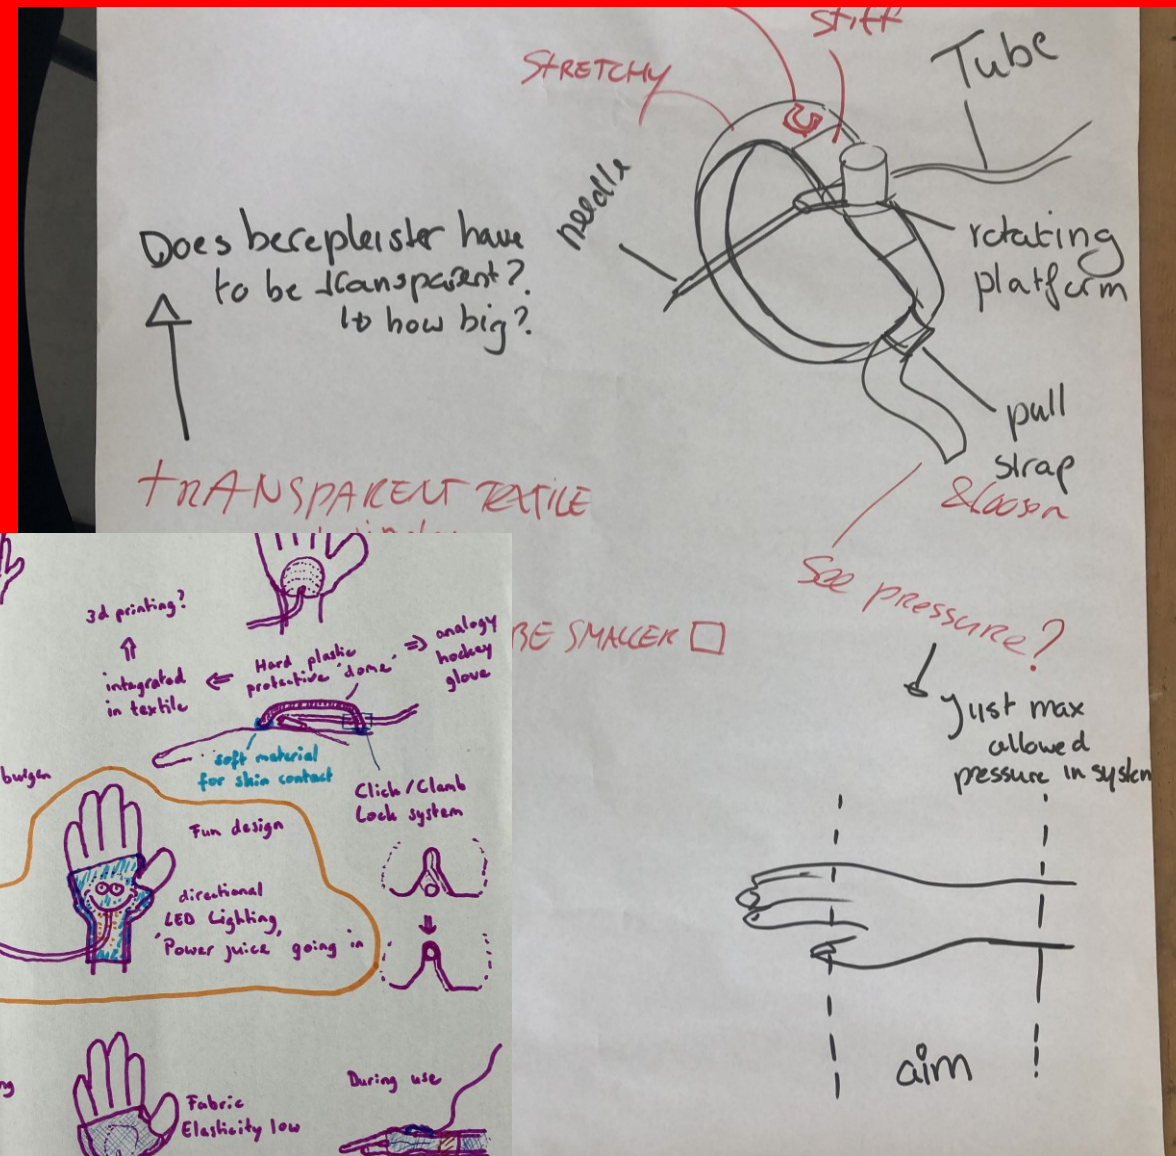 STRETCHY
stiff
Tube
needle
Does berepleister have
to be transparent?
to how big?
rotating
platform
pull
strap
& loosen
TRANSPARENT TEXTILE
See pressure?
BE SMALLER
Just max
allowed
pressure in system
aim
3d printing?
integrated
in textile
Hard plastic
protective 'dome'
analogy
hockey
glove
soft material
for skin contact
Click/Clamb
Lock system
Fun design
directional
LED Lighting,
'Power juice' going in
Fabric
Elasticity low
During use